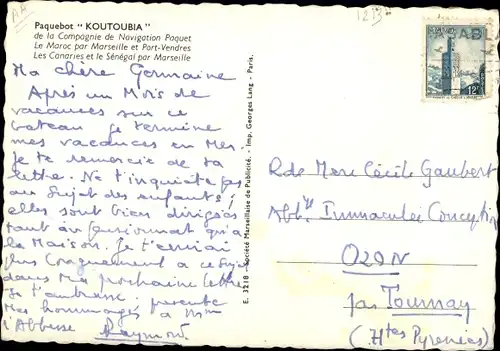 Paquebot " KOUTOUBIA "
de la Compagnie de Navigation Paquet
Le Maroc par Marseille et Port-Vendres
Les Canaries et le Sénégal par Marseille
Ma chère Germaine
Après un Mois de
vacances sur ce
bateau je termine
mes vacances en Mer.
Je te remercie de ta
lettre. Ne t'inquiète pas
au Sujet des enfants ;
elles sont bien dirigées
tant au pensionnat qu'à
la Maison. Je t'écrirai
plus longuement à ce Sujet
dans Ma prochaine lettre
Je t'embrasse. présente
Mes hommages à Mme
l'Abbesse Raymond
E. 3218 - Société Marseillaise de Publicité. - Imp. Georges Lang - Paris.
Rde Mère Cécile Gaubert
Abbye Immaculée Conception
OZON
par Tournay
(Htes Pyrénées)